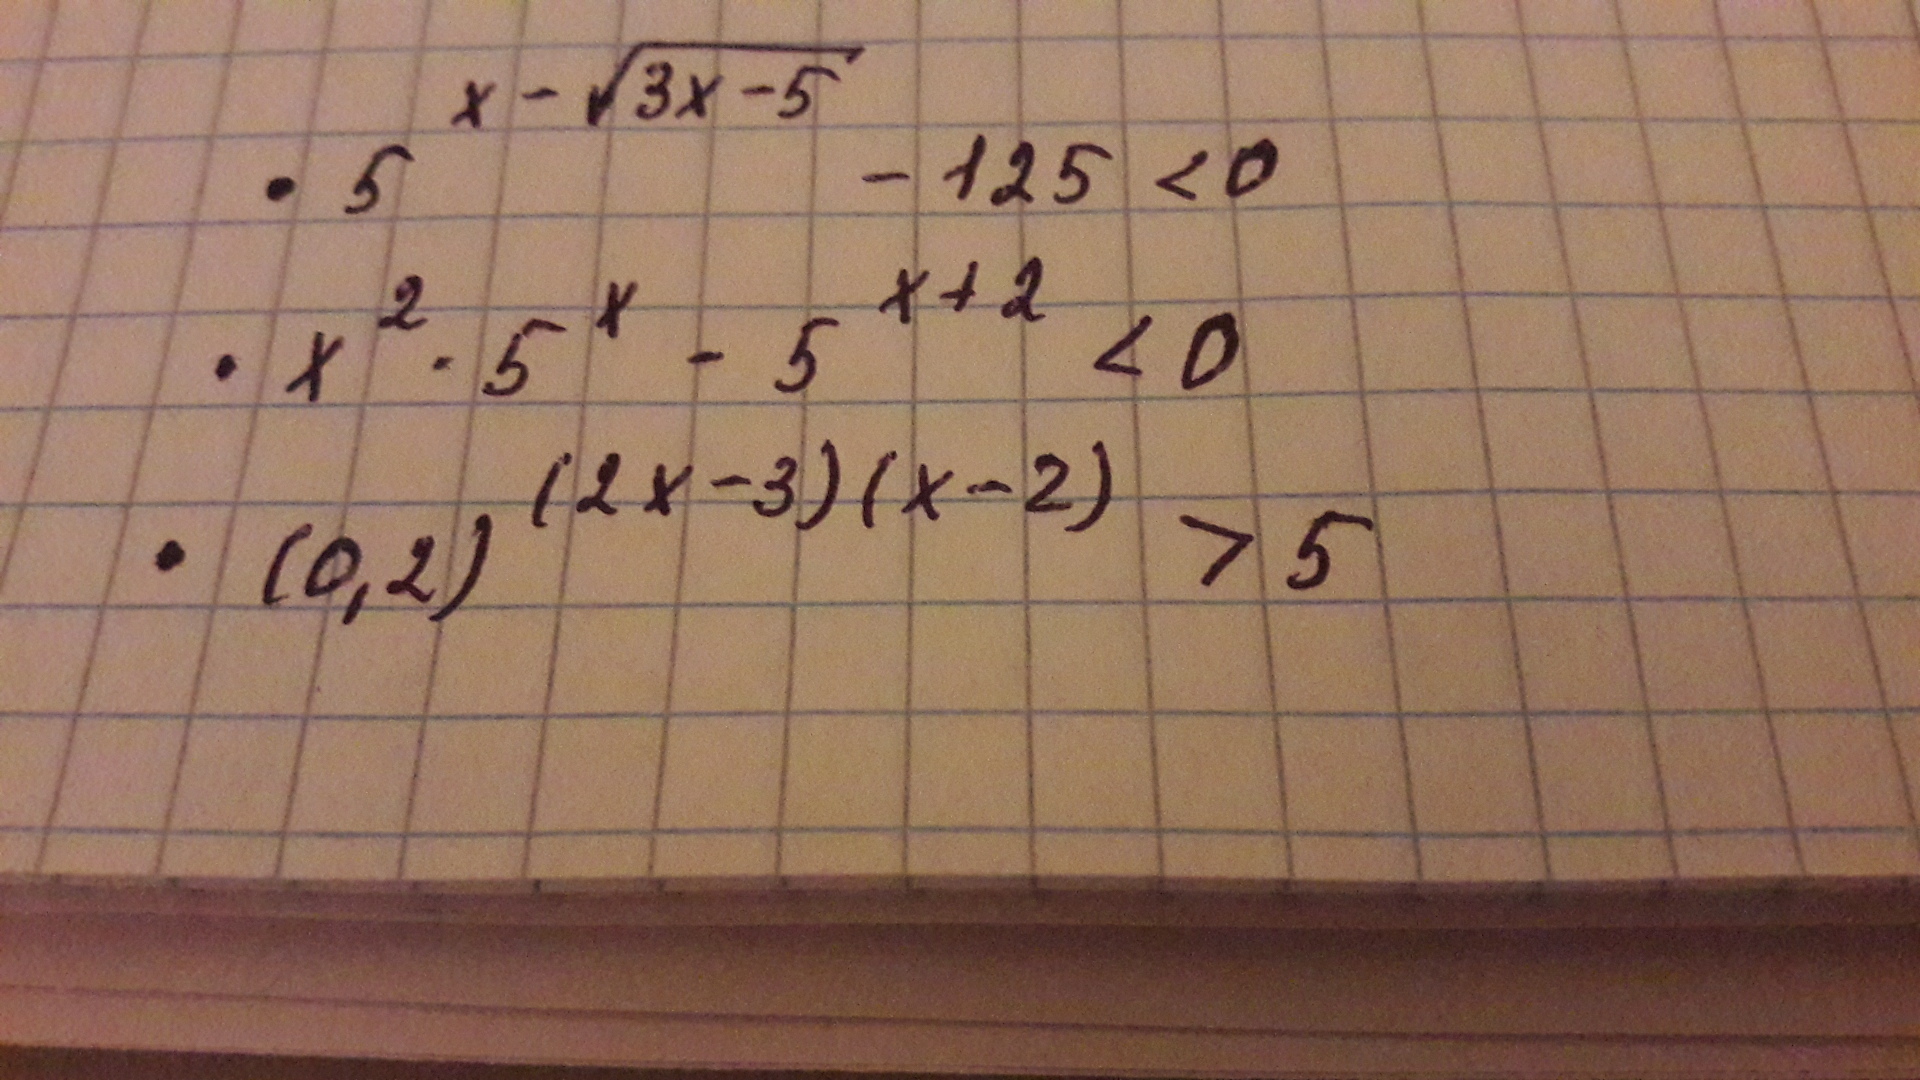 • 5^{x-√(3x-5)} - 125 < 0
• x² · 5^x - 5^{x+2} < 0
• (0,2)^{(2x-3)(x-2)} > 5